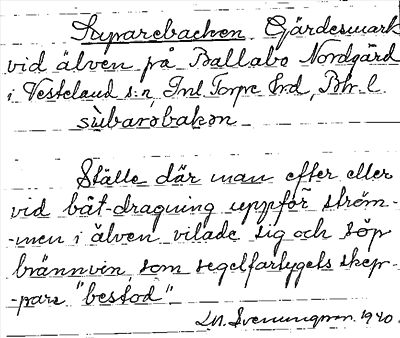 Suparebacken Gärdesmark
vid älven på Ballabo Nordgård
i Vesteland s:n, Inl. Torpe hrd, Bhr. l.
sùbarəbakən
Ställe där man efter eller
vid båt-dragning uppför ström-
-men i älven vilade sig och söp
brännvin, som segelfartygets skep-
-pare "bestod".
Svenungsson. 1940.